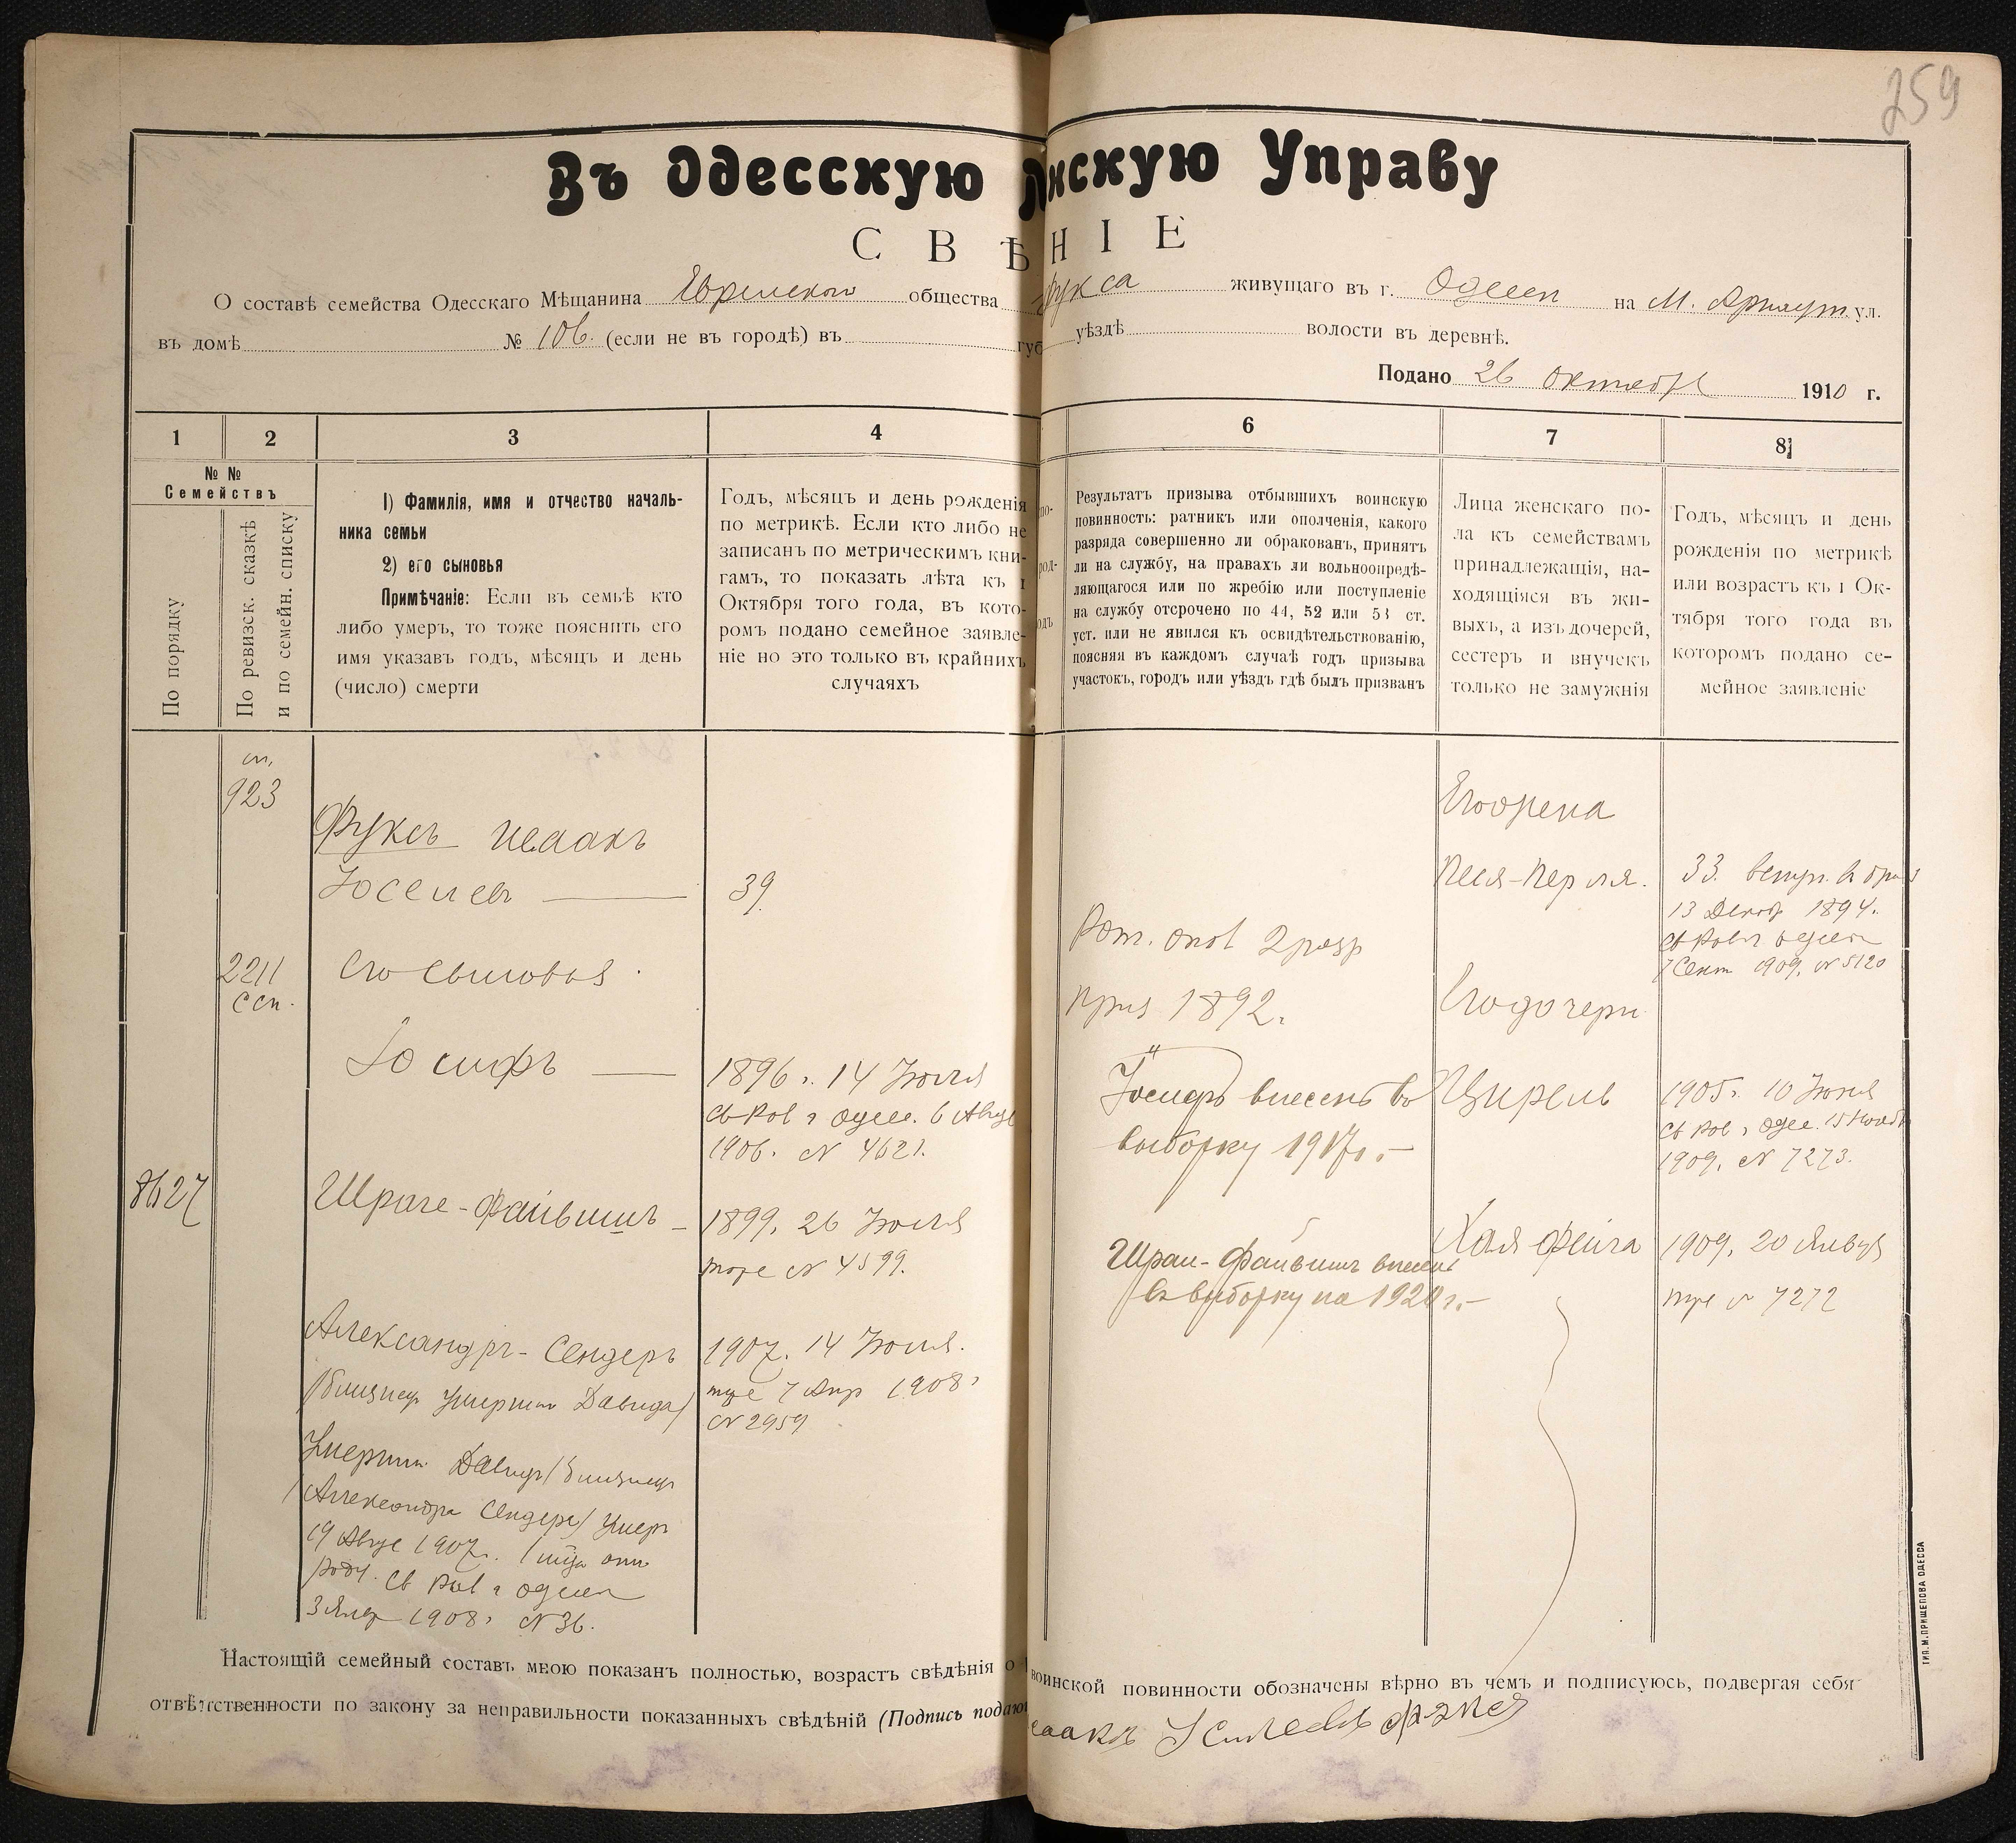 259
Въ Одесскую нскую Управу
СВѢНІЕ
О составѣ семейства Одесскаго Мѣщанина Еврейскаго общества Фукса живущаго въ г. Одессѣ на М. Арнаут. ул.
въ домѣ № 106. (если не въ городѣ) въ губ уѣздѣ волости въ деревнѣ.
Подано 26 октября 1910 г.
1 2 3 4
№ №
Семействъ
По порядку
По ревизск. сказкѣ
и по семейн. списку
1) Фамилія, имя и отчество началь-
ника семьи
2) его сыновья
Примѣчаніе: Если въ семьѣ кто
либо умеръ, то тоже пояснить его
имя указавъ годъ, мѣсяцъ и день
(число) смерти
Годъ, мѣсяцъ и день рожденія
по метрикѣ. Если кто либо не
записанъ по метрическимъ кни-
гамъ, то показать лѣта къ 1
Октября того года, въ кото-
ромъ подано семейное заявле-
ніе но это только въ крайнихъ
случаяхъ
сп.
923
Фуксъ Исаакъ
Іоселевъ — 39
2211
ссп.
Его сыновья
Іосифъ — 1896 г. 14 Іюля
Св Рав г Одес. 6 Авгус
1906. № 4621.
8627
Шраге-Файвишъ – 1899. 26 Іюля
тоже № 4599.
Александръ-Сендеръ 1907. 14 Іюля.
/близнец умершаго Давида/ тоже 7 Апр 1908г
№ 2959
Умершій Давидъ /близнецъ
/Александра Сендера/ умеръ
19 Авгус 1907г.
Св Рав г Одессы
3 Янв 1908г № 36.
6 7 8
Результатъ призыва отбывшихъ воинскую
повинность: ратникъ или ополченія, какого
разряда совершенно ли обракованъ, принятъ
ли на службу, на правахъ ли вольноопредѣ-
ляющагося или по жребію или поступленіе
на службу отсрочено по 44, 52 или 53 ст.
уст. или не явился къ освидѣтельствованію,
поясняя въ каждомъ случаѣ годъ призыва
участокъ, городъ или уѣздъ гдѣ былъ призванъ
Лица женскаго по-
ла къ семействамъ
принадлежащія, на-
ходящіяся въ жи-
выхъ, а изъ дочерей,
сестеръ и внучекъ
только не замужнія
Годъ, мѣсяцъ и день
рожденія по метрикѣ
или возрастъ къ 1 Ок-
тября того года въ
которомъ подано се-
мейное заявленіе
Его жена
Песя-Перля. 33. вступ. в брак
13 Декаб 1894.
Св Рав г Одессы
7 Сент 1909. № 5120
Рат. опол 2 разр
приз 1892.
Его дочери
Іосифъ внесенъ въ
выборку 1917 г. –
Цирель 1905г. 10 Іюня
Св Рав г Одес. 15 Нояб
1909. № 7273.
Шраи-Файвишъ внесенъ
въ выборку на 1920 г. –
Хая Фейга 1909. 20 Января
тоже № 7272
Настоящій семейный составъ мною показанъ полностью, возрастъ свѣдѣнія о воинской повинности обозначены вѣрно въ чемъ и подписуюсь, подвергая себя
отвѣтственности по закону за неправильности показанныхъ свѣдѣній (Подпись подаю саакъ Фукса
ТИП. М. ПРИЩЕПОВА ОДЕССА